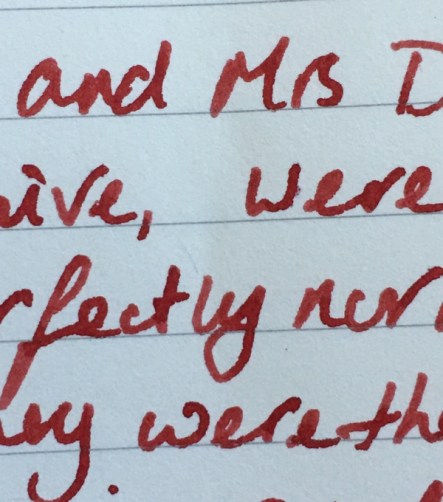 and Mrs D
ive, were
rfectly nor
were the